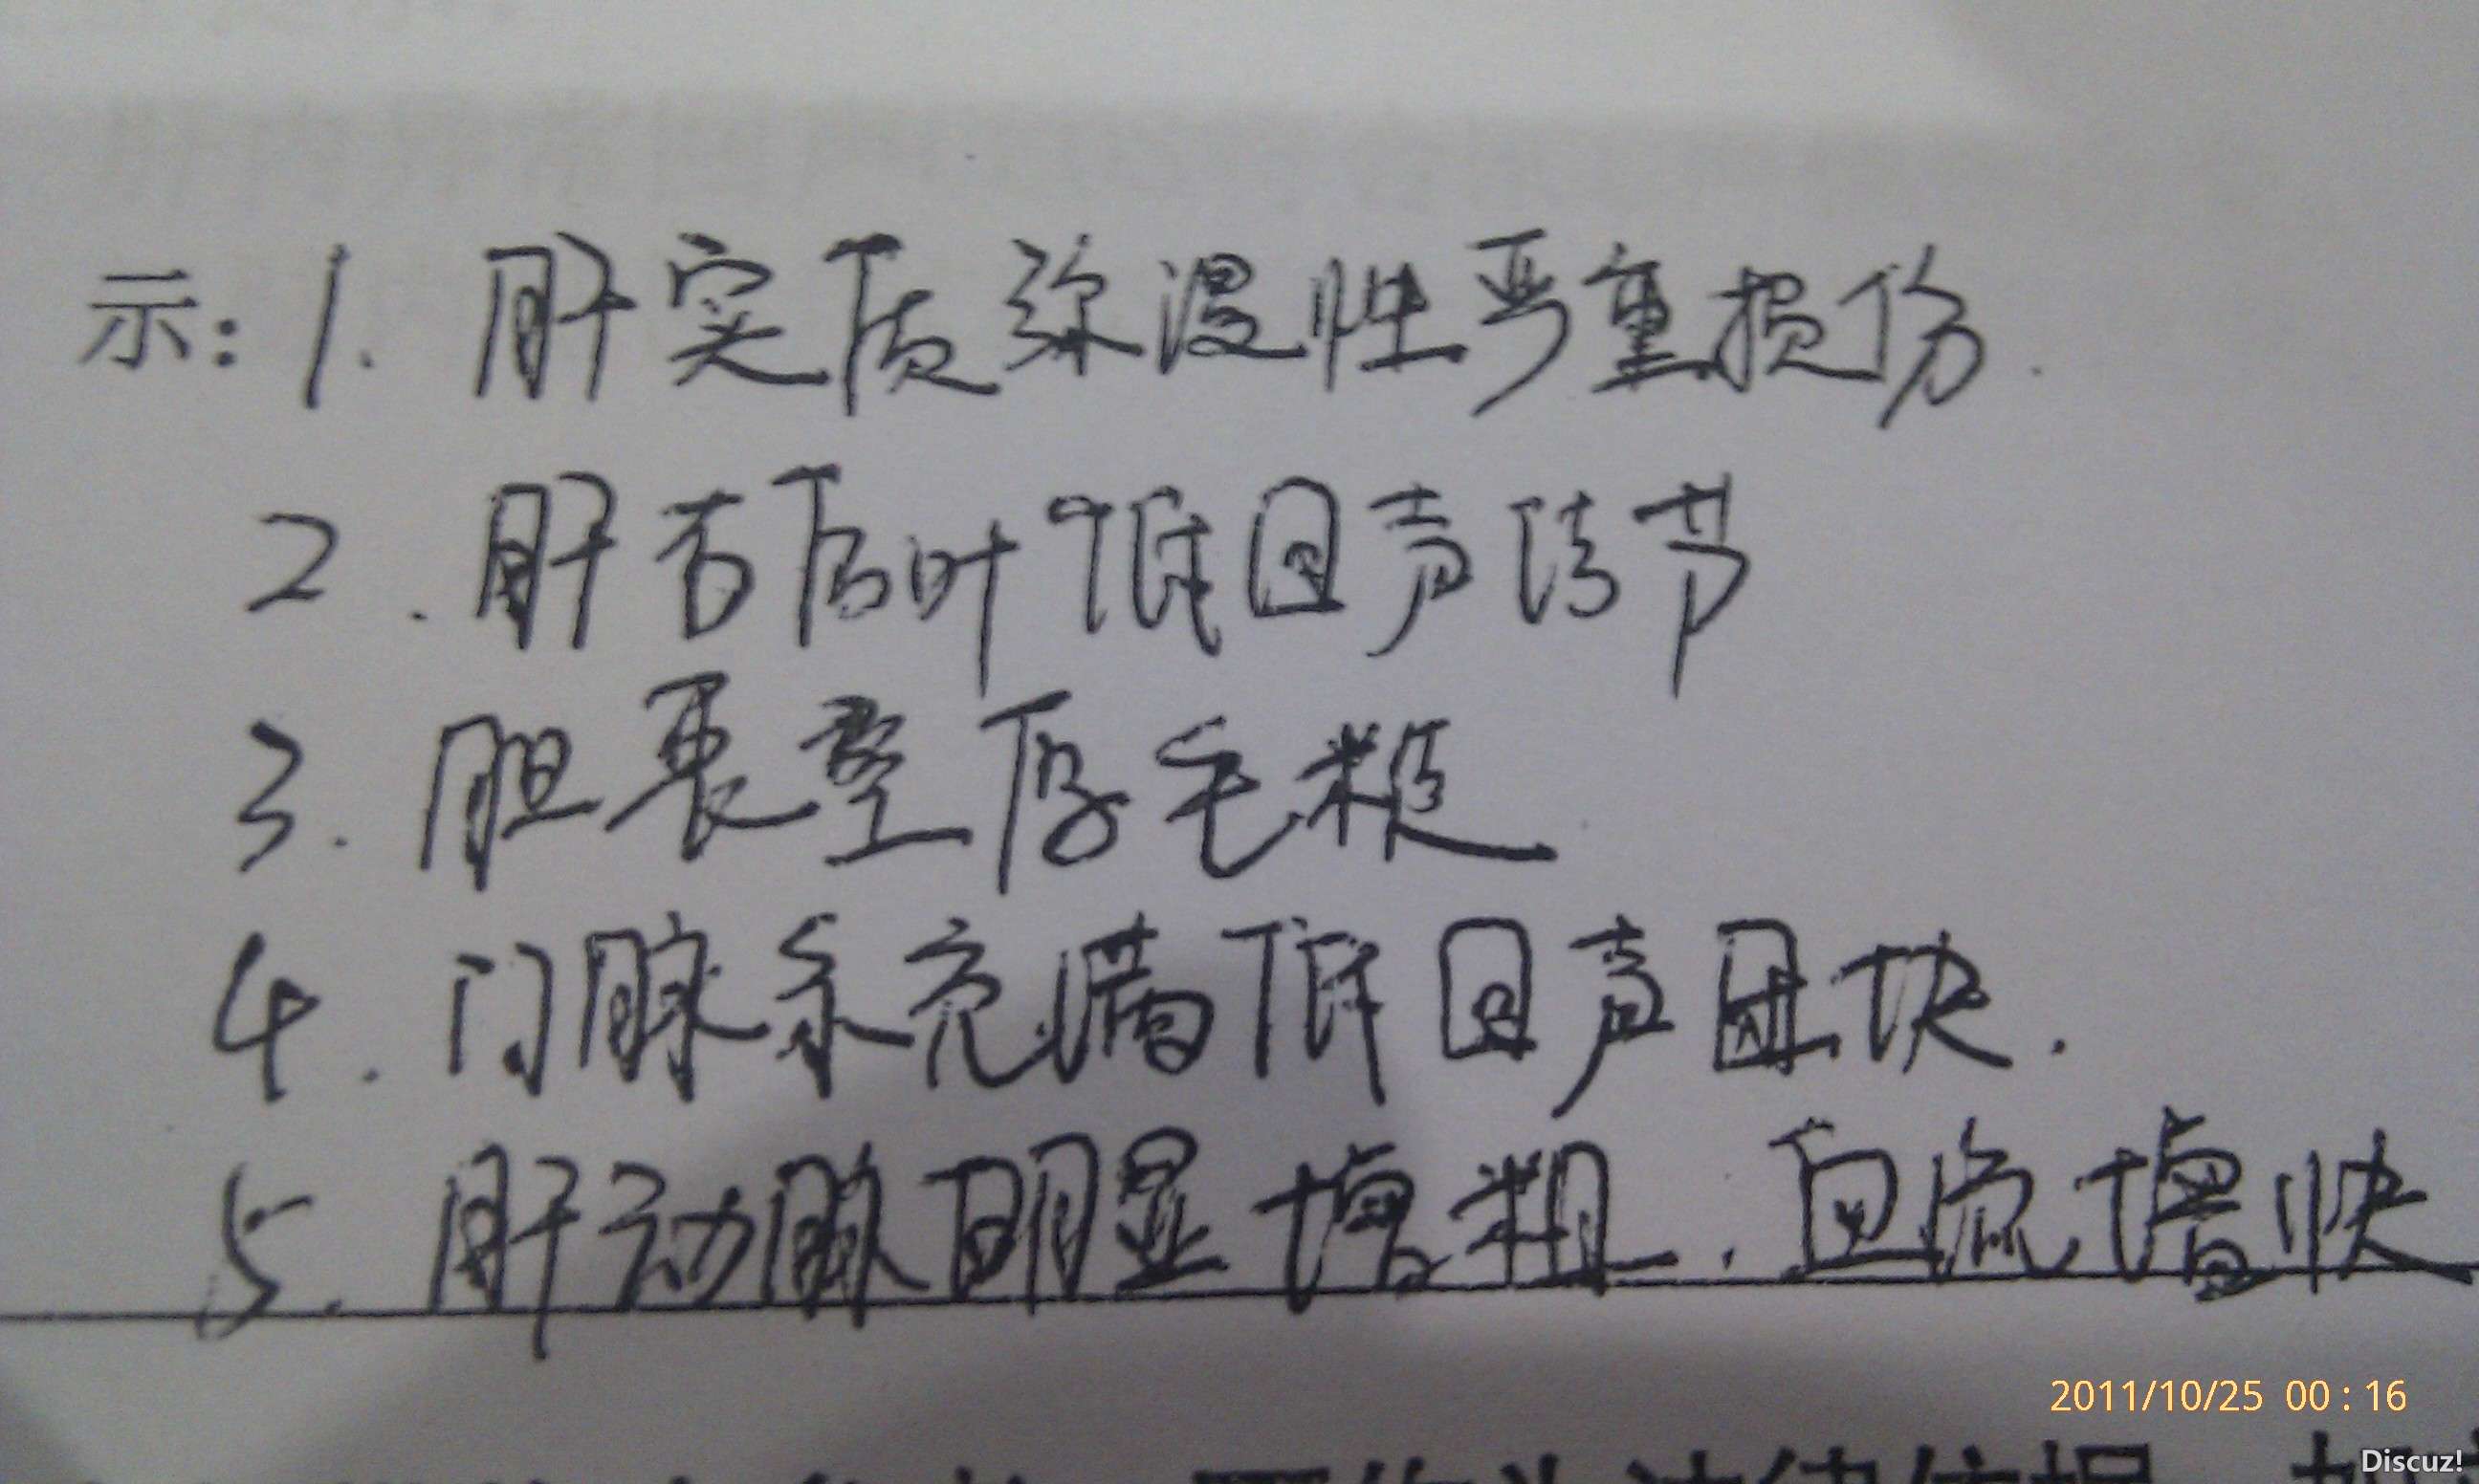 示：1. 肝实质弥漫性严重损伤.
2. 肝右后叶低回声结节
3. 胆囊壁厚毛糙
4. 门脉系充满低回声团块.
5. 肝动脉明显增粗. 血流增快
2011/10/25 00:16
Discuz!